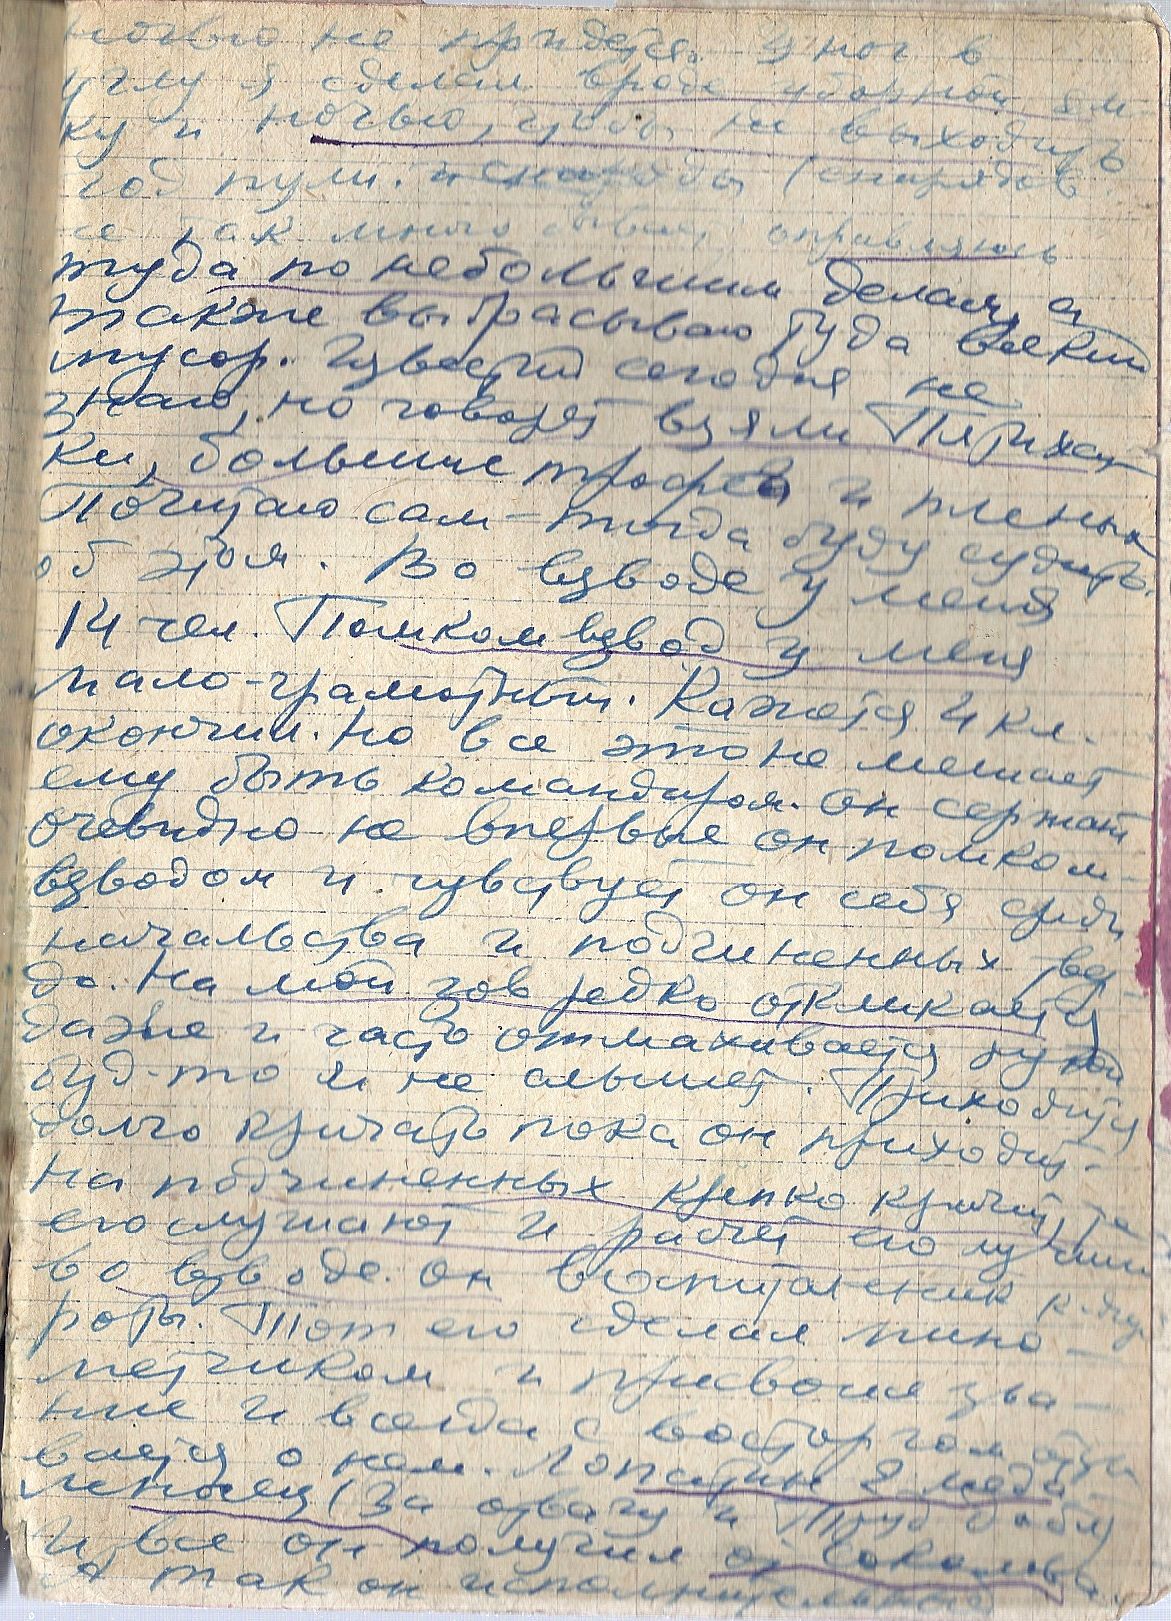 ночью не придется. У ног в
углу я сделал вроде уборной ям-
ку и ночью, чтобы не выходить
под пули. и снаряды (снарядов
не так много бывает оправляюсь
туда по небольшим делам, а
также выбрасываю туда всякий
мусор. Известий сегодня не
знаю, но говорят взяли Пятихат-
ки, большие трофеи и пленных
Почитаю сам – тогда буду судить
об этом. Во взводе у меня
14 чел. Помкомвзвод у меня
мало-грамотный. Кажется 4 кл.
окончил. Но все это не мешает
ему быть командиром. Он сержант
очевидно не впервые он помком-
взводом и чувствует он себя среди
начальства и подчиненных
На мой зов редко откликается
даже и часто отмахивается рукой
буд-то и не слышит. Приходится
долго кричать пока он приходит.
На подчиненных крепко кричит,
его слушают и расчет его лучший
во взводе. Он воспитанник к-ра
роты. Тот его сделал мино-
метчиком и присвоил зва-
ние и всегда с восторгом отзы-
вается о нем. Лопатин 2 меда-
леносец (За отвагу и Труд добл)
и все он получил от Соколова.
А так он исполнительный